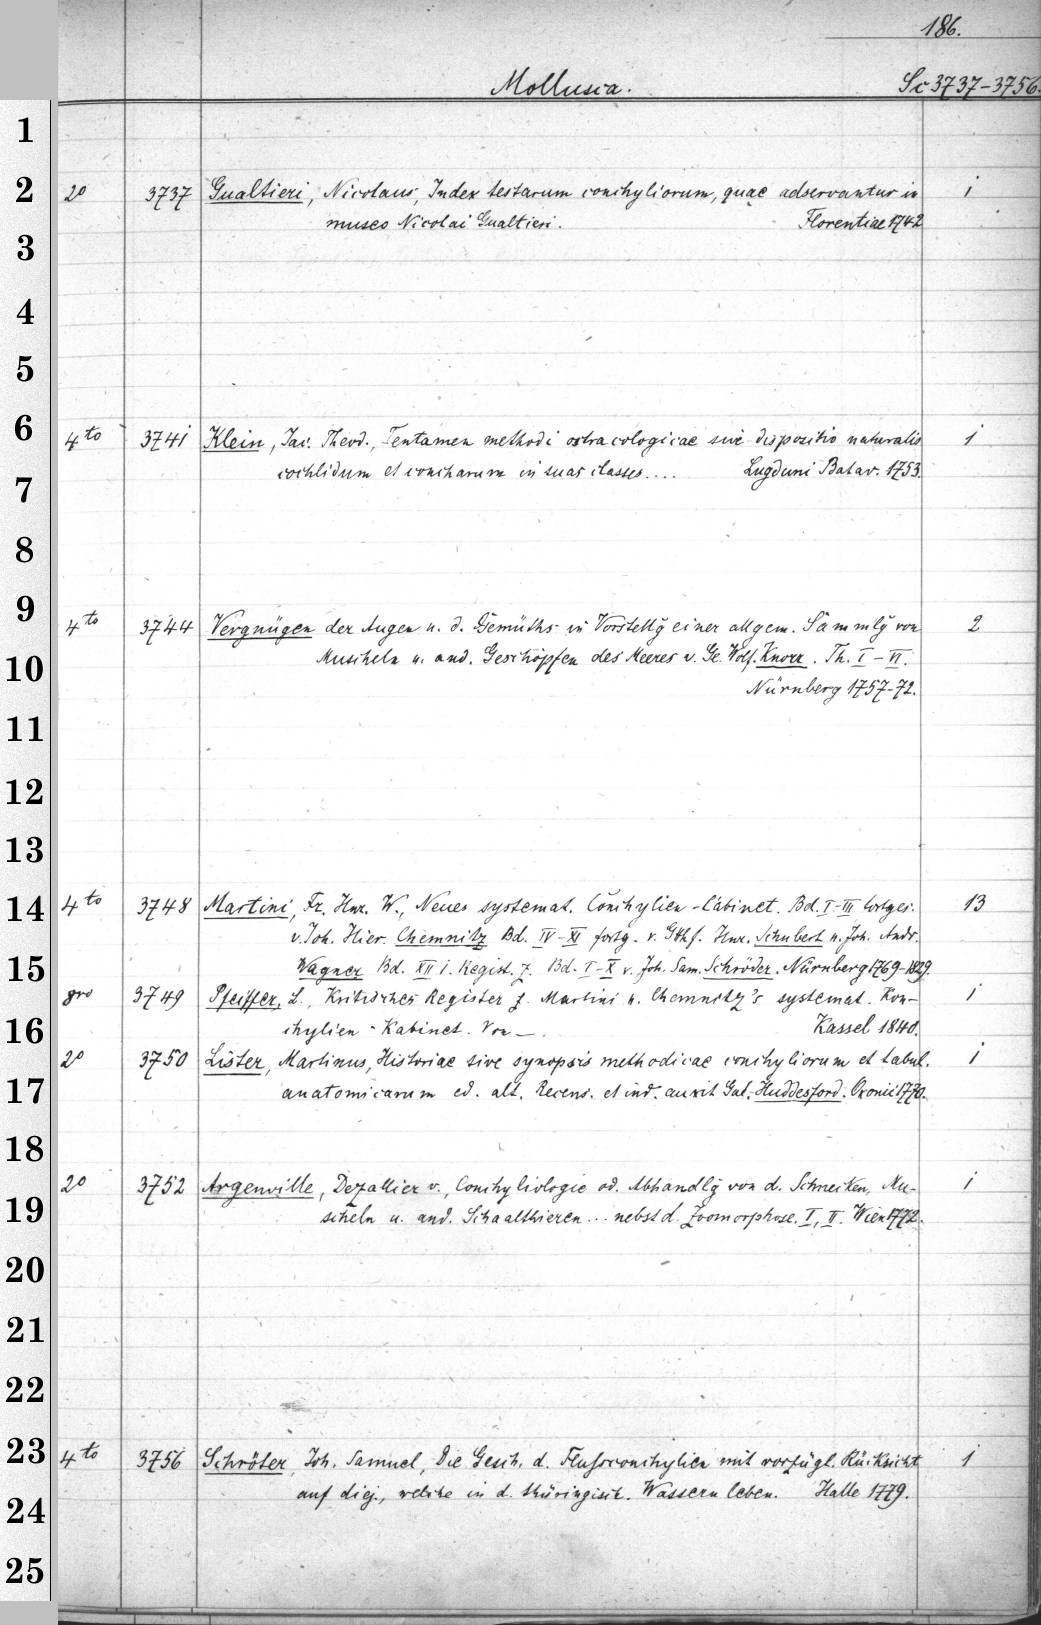 186.
Mollusca. Sc 3737-3756.
1
2 2o 3737 Gualtieri, Nicolaus, Index testarum conchyliorum, quae adservantur in 1
museo Nicolai Gualtieri. Florentiae 1742
3
4
5
6 4to 3741 Klein, Jac. Theod., Tentamen methodi ostracologicae sive dispositio naturalis 1
cochlidum et concharum in suas classes.... Lugduni Batav. 1753.
7
8
9 4to 3744 Vergnügen der Augen u. d. Gemüths in Vorstellg einer allgem. Sammlg von 2
10 Muscheln u. and. Geschöpfen des Meeres v. Ge. Wolf. Knorr. Th. I-VI.
Nürnberg 1757-72.
11
12
13
14 4to 3748 Martini, Fr. Hnr. W., Neues systemat. Conchylien-Cabinet. Bd. I-III fortges. 13
v. Joh. Hier. Chemnitz Bd. IV-XI fortg. v. Gthf. Hnr. Schubert u. Joh. Andr.
15 Wagner Bd. XII i. Regist. z. Bd. I-X v. Joh. Sam. Schröder. Nürnberg 1769-1829.
8vo 3749 Pfeiffer, L., Kritisches Register z. Martini u. Chemnitz's systemat. Kon- 1
16 chylien-Kabinet. Von —. Kassel 1840.
2o 3750 Lister, Martinus, Historiae sive synopsis methodicae conchyliorum et tabul. 1
17 anatomicarum ed. alt. Recens. et ind. auxit Gul. Huddesford. Oxonii 1770.
18
2o 3752 Argenville, Dezallier v., Conchyliologie od. Abhandlg von d. Schnecken, Mu- 1
19 scheln u. and. Schaalthieren... nebst d. Zoomorphose. I, II. Wien 1772.
20
21
22
23 4to 3756 Schröter, Joh. Samuel, Die Gesch. d. Flussconchylien mit vorzügl. Rücksicht 1
24 auf diej., welche in d. thüringisch. Wassern leben. Halle 1779.
25